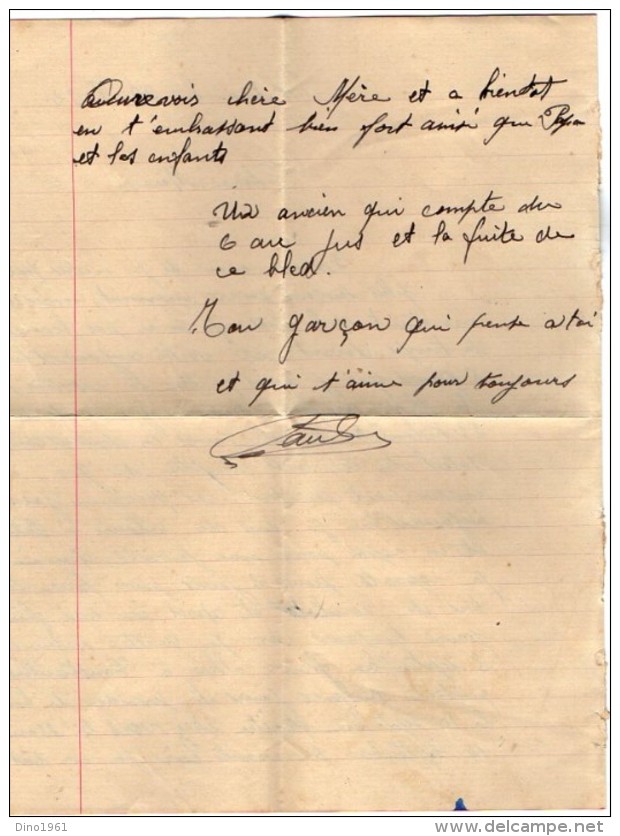 Aurevois chère Mère et a bientot
en t'embrassant bien fort ainsi que Papa
et les enfants
Un ancien qui compte du
6 au jus et la fuite de
ce bled.
Ton garçon qui pense a toi
et qui t'aime pour toujours
Dino1961
www.delcampe.net